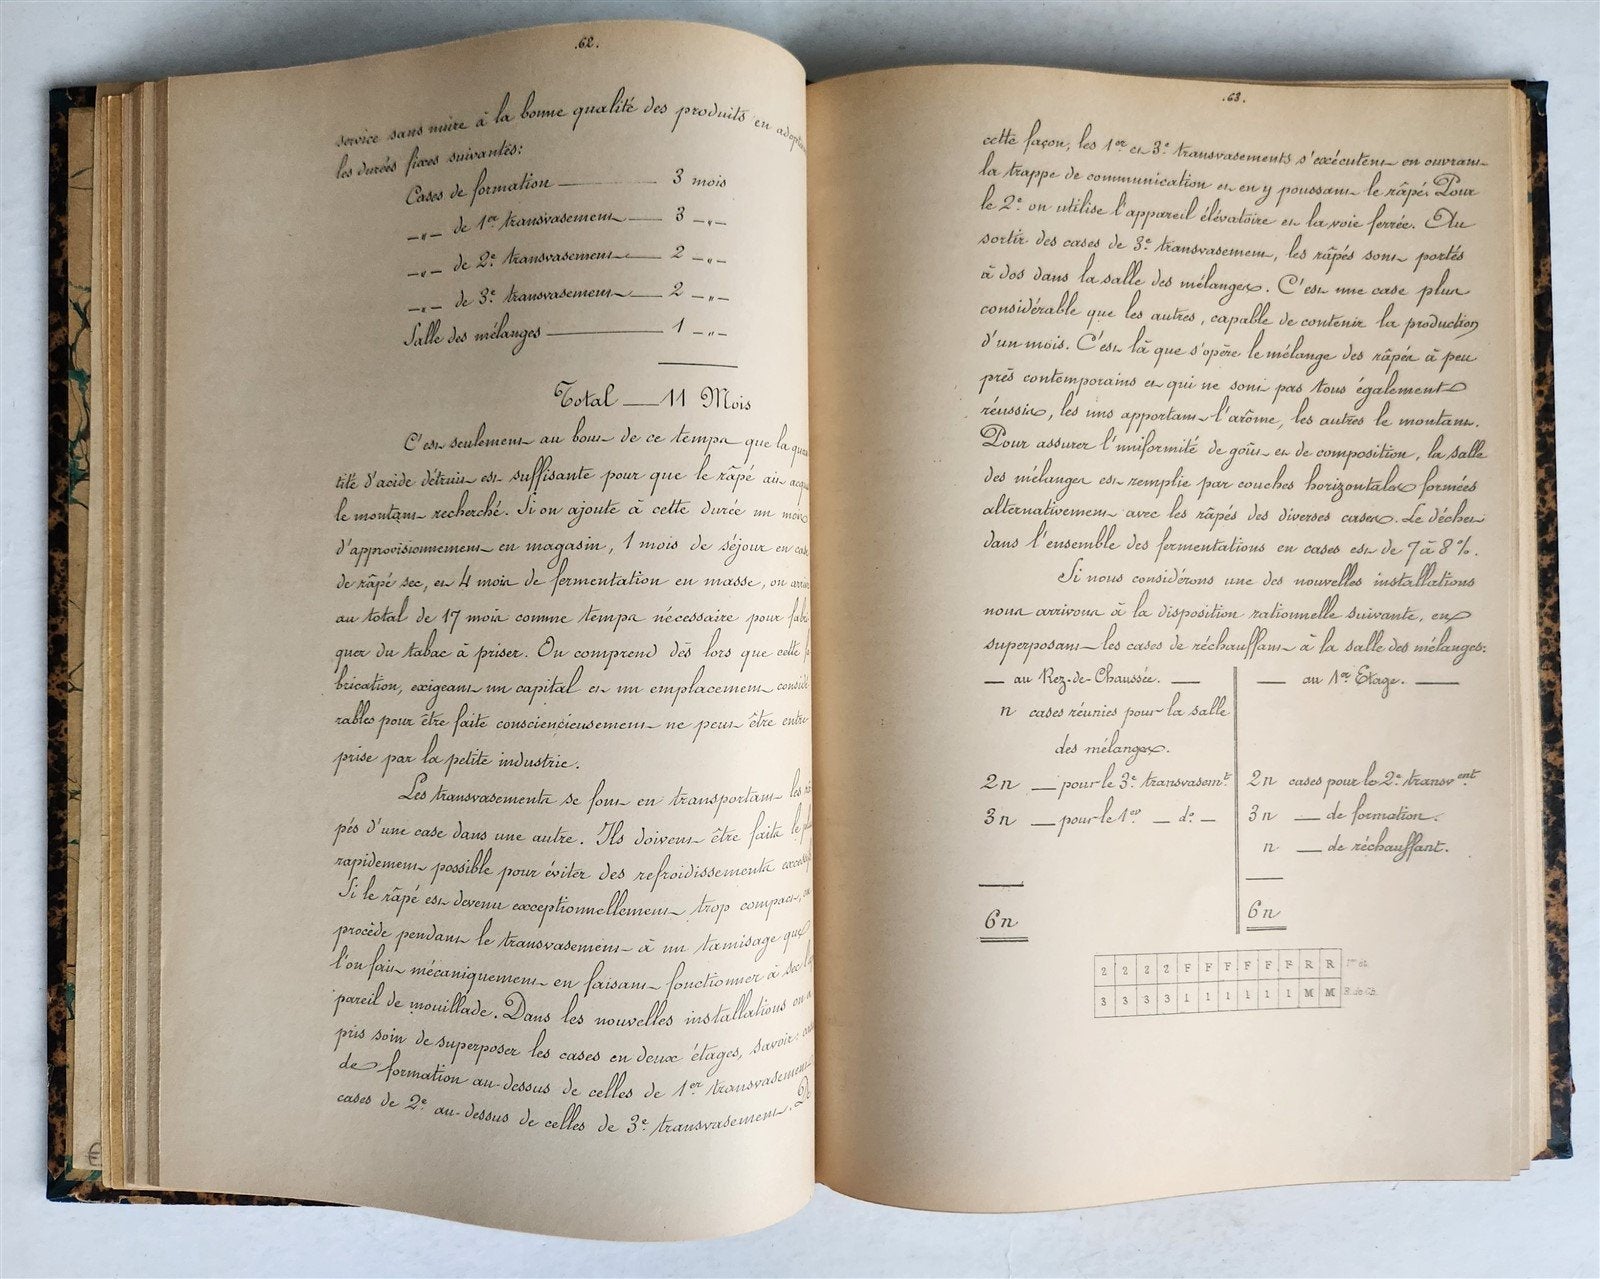 .62.
service sans nuire à la bonne qualité des produits en adoptan
les durées fixes suivantes:
Cases de formation — 3 mois
—"— de 1er transvasement — 3 —"—
—"— de 2e transvasement — 2 —"—
—"— de 3e transvasement — 2 —"—
Salle des mélanges — 1 —"—
Total — 11 Mois
C'est seulement au bout de ce temps que la quan
tité d'acide détruit est suffisante pour que le râpé ait acqu
le montant recherché. Si on ajoute à cette durée un mois
d'approvisionnement en magasin, 1 mois de séjour en case
de râpé sec, et 4 mois de fermentation en masse, on arrive
au total de 17 mois comme temps nécessaire pour fabri
quer du tabac à priser. On comprend dès lors que cette fa
brication, exigeant un capital et un emplacement considé
rables pour être faite consciencieusement ne peut être entre
prise par la petite industrie.
Les transvasements se font en transportant les râ
pés d'une case dans une autre. Ils doivent être faits le plus
rapidement possible pour éviter des refroidissements excessifs
Si le râpé est devenu exceptionnellement trop compact, on
procède pendant le transvasement à un tamisage que
l'on fait mécaniquement en faisant fonctionner à sec l'ap
pareil de mouillade. Dans les nouvelles installations on a
pris soin de superposer les cases en deux étages, savoir: cases
de formation au-dessus de celles de 1er transvasement
cases de 2e au-dessus de celles de 3e transvasement. De
.63.
cette façon, les 1er et 3e transvasements s'exécutent en ouvrant
la trappe de communication et en y poussant le râpé. Pour
le 2e on utilise l'appareil élévatoire et la voie ferrée. Au
sortir des cases de 3e transvasement, les râpés sont portés
à dos dans la salle des mélanges. C'est une case plus
considérable que les autres, capable de contenir la production
d'un mois. C'est là que s'opère le mélange des râpés à peu
près contemporains et qui ne sont pas tous également
réussis, les uns apportant l'arôme, les autres le montant.
Pour assurer l'uniformité de goût et de composition, la salle
des mélanges est remplie par couches horizontales formées
alternativement avec les râpés des diverses cases. Le déchet
dans l'ensemble des fermentations en cases est de 7 à 8%.
Si nous considérons une des nouvelles installations
nous arrivons à la disposition rationnelle suivante, en
superposant les cases de réchauffant à la salle des mélanges:
— au Rez-de-Chaussée. —
n cases réunies pour la salle
des mélanges.
2n — pour le 3e transvasemt
3n — pour le 1er — do —
6n
— au 1er Etage. —
2n cases pour le 2e transvent
3n — de formation.
n — de réchauffant.
6n
2 2 2 2 F F F F F F R R 1er ét.
3 3 3 3 1 1 1 1 1 1 M M R. de Ch.
€